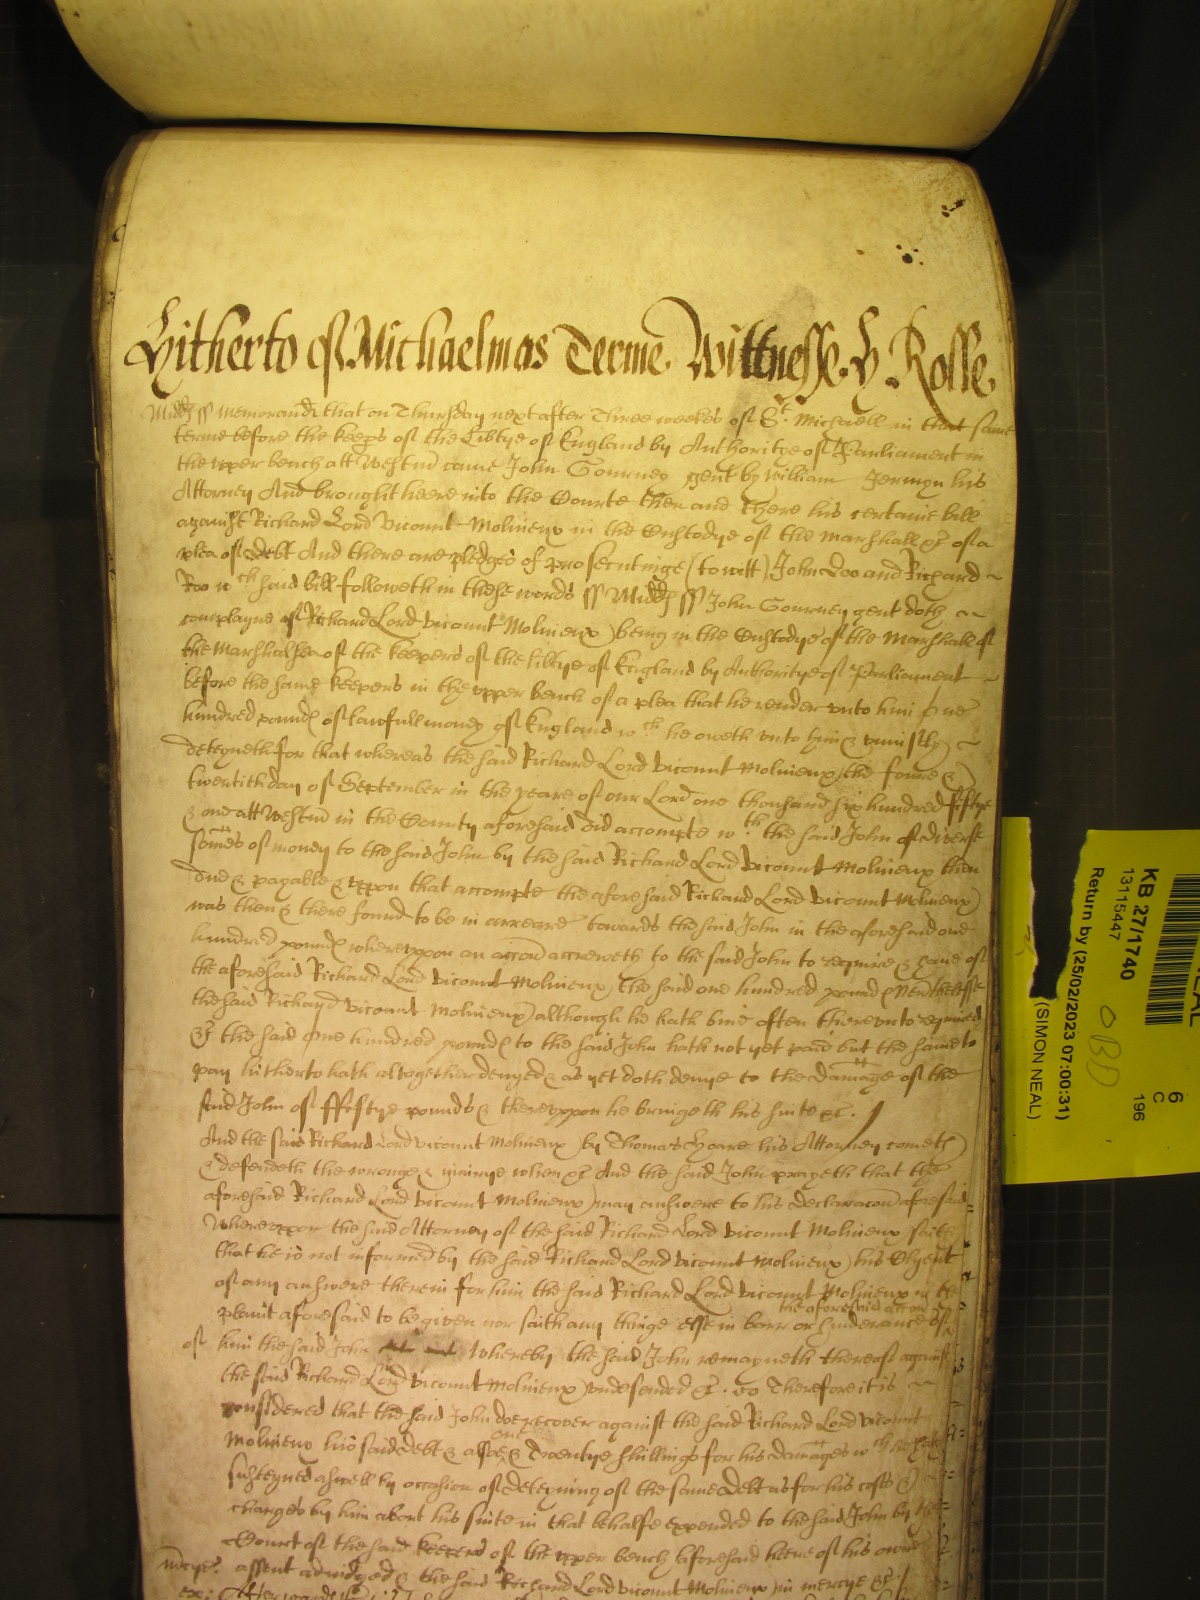 Hitherto of Michaelmas Terme Wittnesse H Rolle.
Midd ss Memorand that on Thursday next after Three weekes of St. Michaell in that same
terme before the keeps of the Libtye of England by Authoritye of Parliament in
the vpper bench att Westm came John Gourney gent by William Jermyn his
Attorney And brought heere into the Courte then and there his certaine bill
against Richard Lord Vicount Molineux in the Custodye of the Marshall &c of a
plea of debt And there are pledges of prosecutinge (to witt) John Doo and Richard
Roo wch said bill followeth in these words ss Midd ss John Gourney gent doth
complayne of Richard Lord Vicount Molineux being in the Custodye of the Marshall of
the Marshalsea of the keepers of the libtye of England by Authoritye of Parliament
before the same keepers in the vpper bench of a plea that he render vnto him One
hundred pounds of lawfull money of England wch he oweth vnto him & vniustly
deteyneth for that whereas the said Richard Lord Vicount Molineux the foure &
twentith day of September in the yeare of our Lord one thousand six hundred fiftye
& one att Westm in the County aforesaid did accompte wth the said John of diverse
somes of money to the said John by the said Richard Lord Vicount Molineux then
due & payable & vppon that accompte the aforesaid Richard Lord Vicount Molineux
was then & there found to be in arreare towards the said John in the aforesaid one
hundred pounds wherevppon an accon accreweth to the said John to require & have of
the aforesaid Richard Lord Vicount Molineux the said one hundred pounds Nevthelesse
the said Richard Vicount Molineux although he hath bine often therevnto required
&c the said One hundred pounds to the said John hath not yet paid but the same to
pay hitherto hath altogether denyed & as yet doth denye to the damage of the
said John of ffiftye pounds & therevppon he bringeth his suite &c.
And the said Richard Lord Vicount Molineux by Thomas Hoare his Attorney cometh
& defendeth the wronge & iniurye when &c And the said John prayeth that the
aforesaid Richard Lord Vicount Molineux may answere to his declaracon aforesaid
Wherevppon the said Attorney of the said Richard Lord Vicount Molineux saith
that he is not informed by the said Richard Lord Vicount Molineux his Clyent
of any answere therein for him the said Richard Lord Vicount Molineux in the
the aforesaid accon
plaint aforesaid to be given nor saith any thinge else in barr or hinderance of
of him the said John Whereby the said John remayneth thereof against
the said Richard Lord Vicount Molineux vndefended &c. Therefore it is
considered that the said John doe recover against the said Richard Lord Vicount
Molineux his said debt & alsoe Twentye shillings for his damages wch he hath
susteyned aswell by occasion of deteyning of the same debt as for his costs &
charges by him about his suite in that behalfe expended to the said John by the
Court of the said keepers of the vpper bench aforesaid heere of his owne
mcye. assent adiudged & the said Richard Lord Vicount Molineux in mercye &c
KB 27/1740
13115447
Return by (25/02/2023 07:00:31)
(SIMON NEAL)
6
C
196
OBD